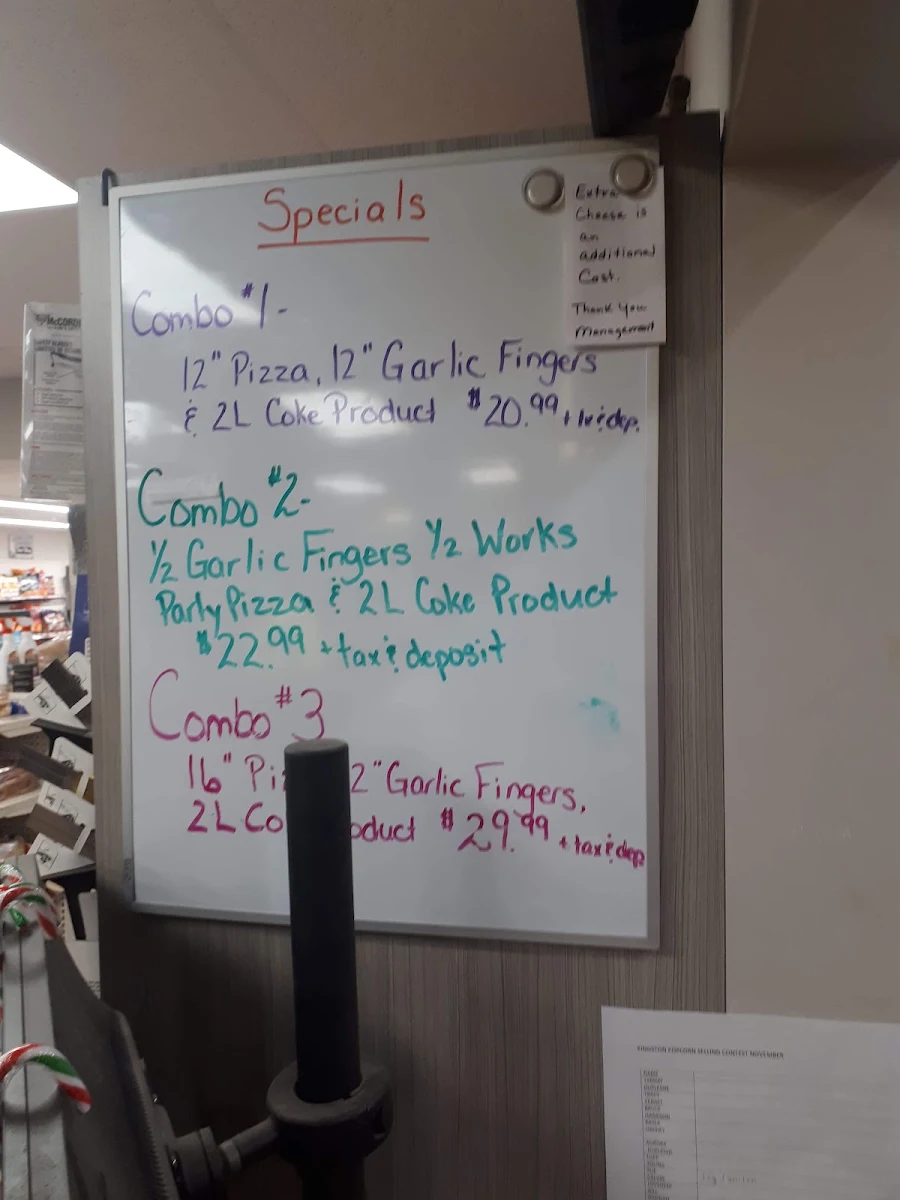 Specials
Extra
Cheese is
an
additional
Cost.
Thank You
Management
Combo #1-
12" Pizza, 12" Garlic Fingers
& 2L Coke Product $20.99 + tx & dep.
Combo #2-
1/2 Garlic Fingers 1/2 Works
Party Pizza & 2L Coke Product
$22.99 + tax & deposit
Combo #3
16" Pi 2" Garlic Fingers,
2L Co oduct $29.99 + tax & dep
KINGSTON POPCORN SELLING CONTEST NOVEMBER